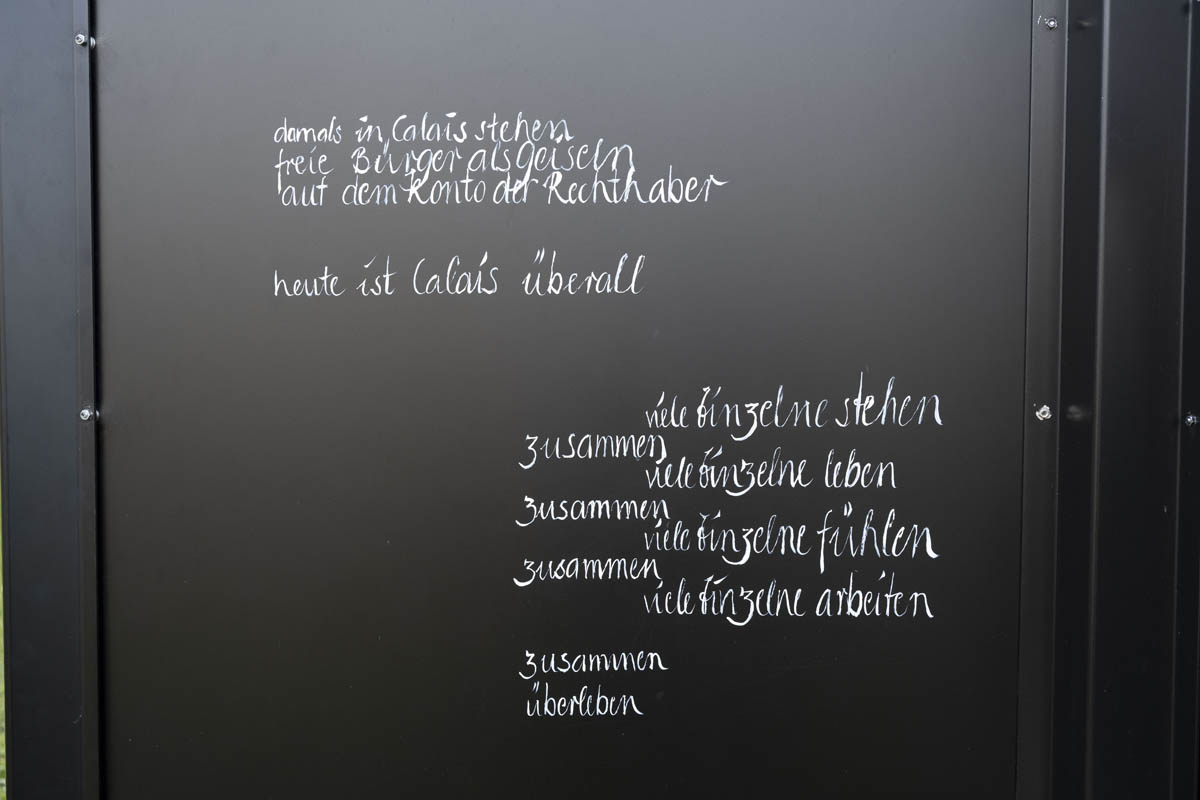 damals in Calais stehen
freie Bürger als geiseln
auf dem Konto der Rechthaber
heute ist Calais überall
viele Einzelne stehen
zusammen
viele Einzelne leben
zusammen
viele Einzelne fühlen
zusammen
viele Einzelne arbeiten
zusammen
überleben